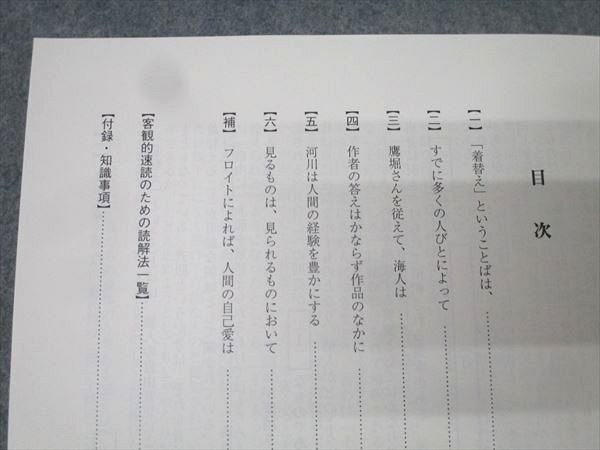 目次
【一】「着替え」ということばは、
【二】すでに多くの人びとによって
【三】鷹堀さんを従えて、海人は
【四】作者の答えはかならず作品のなかに
【五】河川は人間の経験を豊かにする
【六】見るものは、見られるものにおいて
【補】フロイトによれば、人間の自己愛は
【客観的速読のための読解法一覧】
【付録・知識事項】